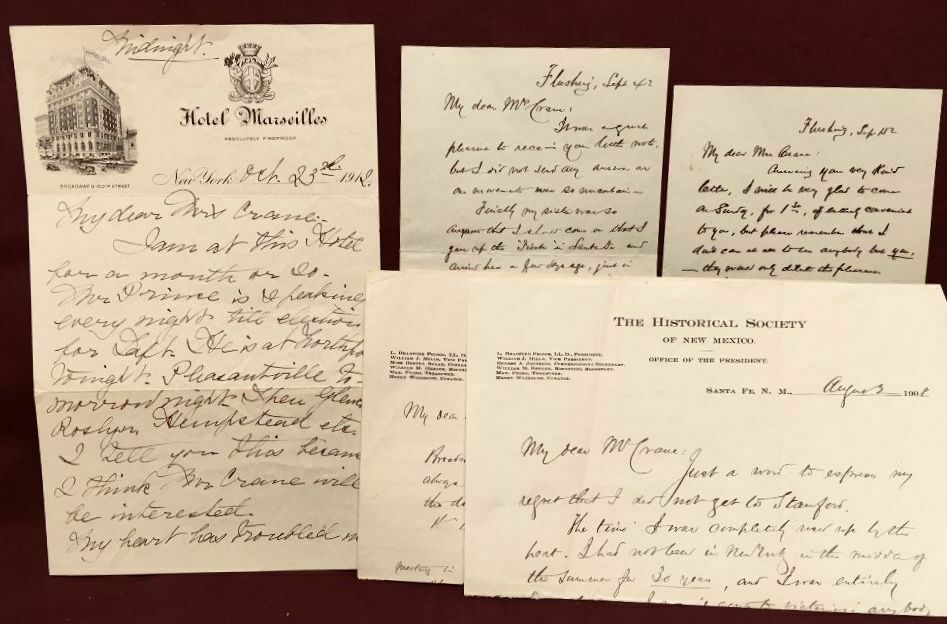 Midnight.
Hotel Marseilles
ABSOLUTELY FIREPROOF
BROADWAY & 103RD STREET
New York Oct. 23rd 1912.
My dear Mrs Crane.
I am at this Hotel
for a month or so.
Mr Prince is speaking
every night till election
for Taft. He is at Northpo
tonight. Pleasantville to-
morrow night. Then Glen
Roslyn Hempstead etc.
I tell you this because
I think Mr Crane will
be interested.
My heart has troubled m
Flushing, Sept 4
My dear Mrs Crane:
It was a great
pleasure to receive your little note.
but I did not send any answer as
our movements were so uncertain —
Finally my sister was so
anxious that I should come on that I
gave up the in Santa Fe and
arrived here a few days ago, just in
Flushing, Sep
My dear Mrs Crane:
Answering your very kind
letter, I will be very glad to come
on Sunday, for 1st, if entirely convenient
to you, but please remember that I
don't care to see anybody but you,
— they would only dilute the pleasure.
L. BRADFORD PRINCE, LL D.,
WILLIAM J. MILLS, VICE PRES
My dear
always
the
THE HISTORICAL SOCIETY
OF NEW MEXICO.
L. BRADFORD PRINCE, LL D., PRESIDENT.
WILLIAM J. MILLS, VICE PRESIDENT.
OFFICE OF THE PRESIDENT.
SANTA FE, N. M., August 2 1908
My dear Mrs Crane:
Just a word to express my
regret that I did not get to Stamford.
The time I was completely used up by the
heat. I had not been in New York in the middle of
the summer for 30 years, and I was entirely